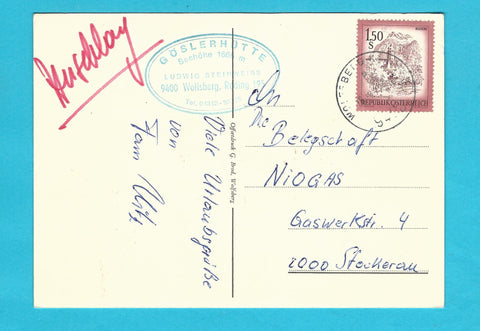 Anschlag
GÖSLERHÜTTE
Seehöhe 1664 m
LUDWIG STEINWEISS
9400 Wolfsberg,
Tel.
Viele Urlaubsgrüße
von
Fam
Offsetdruck G. Wolfsberg
1,50
S
REPUBLIK ÖSTERREICH
WOLFSBERG
94
An
Die Belegschaft
NIOGAS
Gaswerkstr. 4
2000 Stockerau